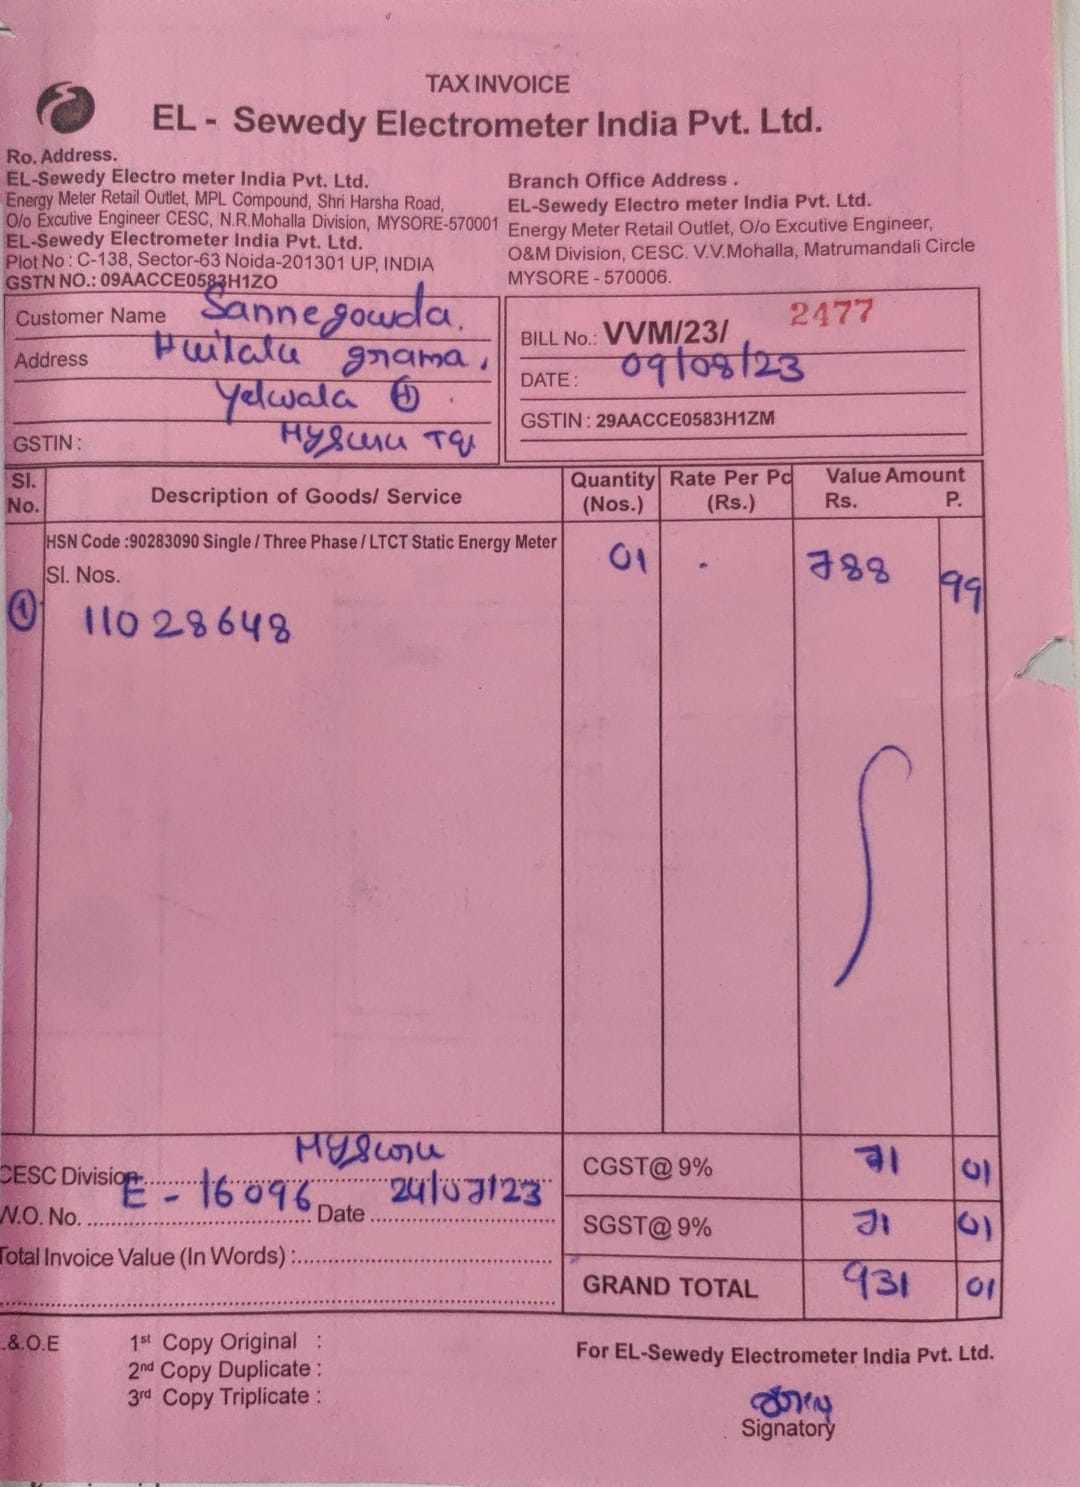 TAX INVOICE
EL - Sewedy Electrometer India Pvt. Ltd.
Ro. Address.
EL-Sewedy Electro meter India Pvt. Ltd.
Energy Meter Retail Outlet, MPL Compound, Shri Harsha Road,
O/o Excutive Engineer CESC, N.R.Mohalla Division, MYSORE-570001
EL-Sewedy Electrometer India Pvt. Ltd.
Plot No : C-138, Sector-63 Noida-201301 UP, INDIA
GSTN NO.: 09AACCE0583H1ZO
Branch Office Address .
EL-Sewedy Electro meter India Pvt. Ltd.
Energy Meter Retail Outlet, O/o Excutive Engineer,
O&M Division, CESC. V.V.Mohalla, Matrumandali Circle
MYSORE - 570006.
Customer Name Sannegowda.
Address Huilalu grama,
Yelwala (H).
GSTIN : Mysuru Tq.
BILL No.: VVM/23/ 2477
DATE : 09/08/23
GSTIN : 29AACCE0583H1ZM
Sl. No. Description of Goods/ Service Quantity (Nos.) Rate Per Pc (Rs.) Value Amount Rs. P.
HSN Code :90283090 Single / Three Phase / LTCT Static Energy Meter 01 . 788 99
Sl. Nos.
1 11028648
CESC Division Mysuru
W.O. No. E - 16096 Date 24/07/23
Total Invoice Value (In Words) :
CGST@ 9% 71 01
SGST@ 9% 71 01
GRAND TOTAL 931 01
.&.O.E
1st Copy Original :
2nd Copy Duplicate :
3rd Copy Triplicate :
For EL-Sewedy Electrometer India Pvt. Ltd.
Signatory